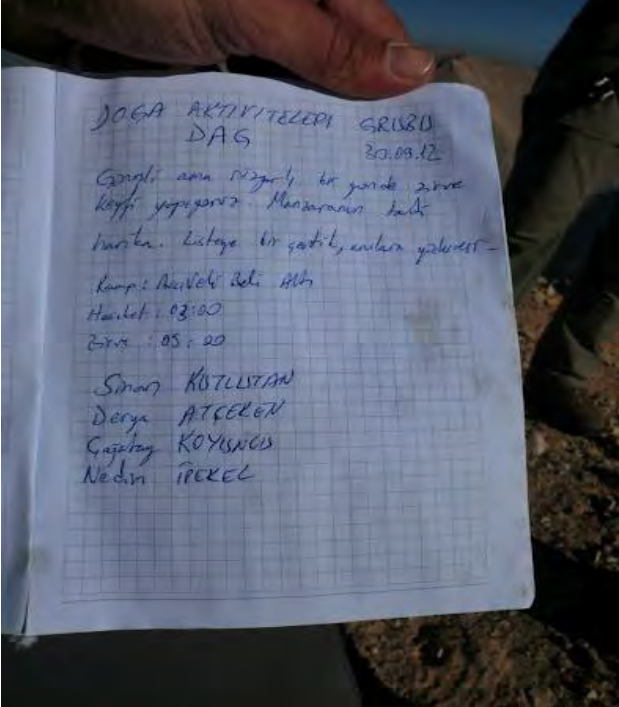 DOĞA AKTİVİTELERİ GRUBU
DAG
30.09.12
ama rüzgarlı bir günde zirve
keyfi yapıyoruz. Manzaranın tadı
harika. Listeye bir çentik, anılara
Kamp: Beli Altı
Hareket: 03:00
Zirve: 05:00
Sinan KUTLUTAN
Derya ATÇEKEN
Çağatay KOYUNCU
Nedim İPEKEL